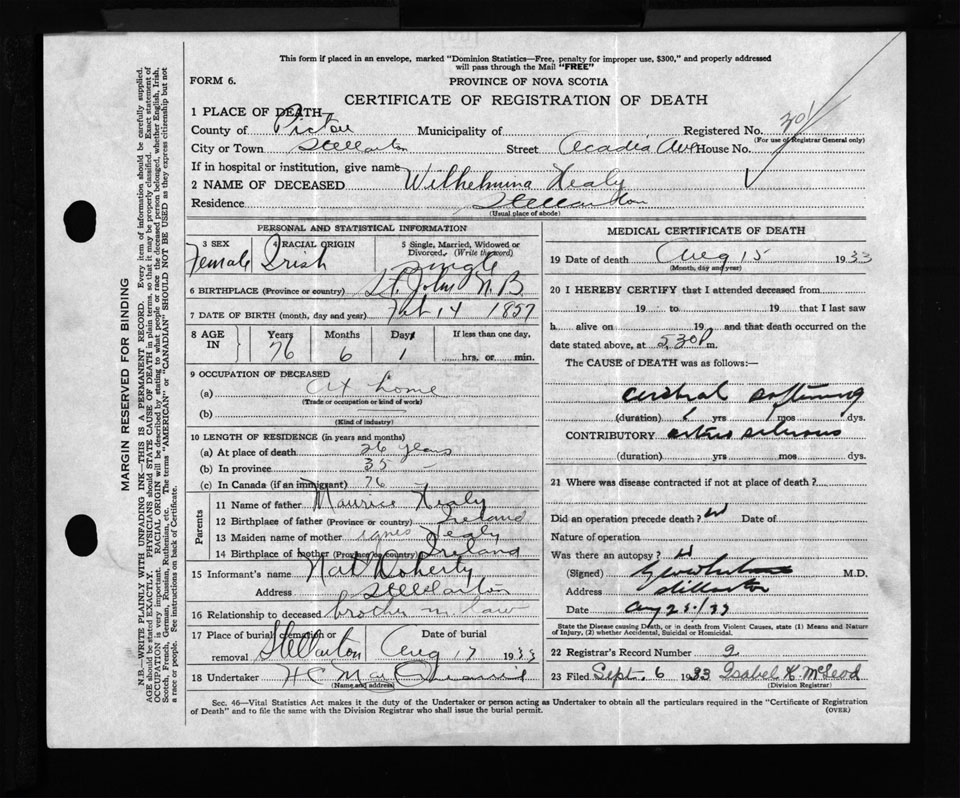 This form if placed in an envelope, marked "Dominion Statistics—Free, penalty for improper use, $300," and properly addressed
will pass through the Mail "FREE"
FORM 6.
PROVINCE OF NOVA SCOTIA
CERTIFICATE OF REGISTRATION OF DEATH
1 PLACE OF DEATH
County of Pictou Municipality of Registered No. 301
(For use of Registrar General only)
City or Town Stellarton Street Acadia Ave House No.
If in hospital or institution, give name
2 NAME OF DECEASED Wilhelmina Healy
Residence Stellarton
(Usual place of abode)
PERSONAL AND STATISTICAL INFORMATION
3 SEX Female
4 RACIAL ORIGIN Irish
5 Single, Married, Widowed or Divorced. (Write the word) Single
6 BIRTHPLACE (Province or country) St John N.B.
7 DATE OF BIRTH (month, day and year) Feb 14 1857
8 AGE IN Years Months Days If less than one day,
76 6 1 hrs, or min.
9 OCCUPATION OF DECEASED
(a) At home
(Trade or occupation or kind of work)
(b)
(Kind of industry)
10 LENGTH OF RESIDENCE (in years and months)
(a) At place of death 26 years
(b) In province 35
(c) In Canada (if an immigrant) 76
Parents
11 Name of father Maurice Healy
12 Birthplace of father (Province or country) Ireland
13 Maiden name of mother Agnes Healy
14 Birthplace of mother (Province or country) Ireland
15 Informant's name Nat Doherty
Address Stellarton
16 Relationship to deceased brother in law
17 Place of burial cremation or removal Stellarton Date of burial Aug 17 1933
18 Undertaker H C
(Name and address)
MEDICAL CERTIFICATE OF DEATH
19 Date of death Aug 15 1933
(Month, day and year)
20 I HEREBY CERTIFY that I attended deceased from
19 to 19 that I last saw
h alive on 19 and that death occurred on
date stated above, at 5.30 P m.
The CAUSE of DEATH was as follows:—
cerebral softening
(duration) yrs mos dys.
CONTRIBUTORY
(duration) yrs mos dys.
21 Where was disease contracted if not at place of death?
Did an operation precede death? Date of
Nature of operation
Was there an autopsy?
(Signed) M.D.
Address Stellarton
Date
State the Disease causing Death, or in death from Violent Causes, state (1) Means and Nature
of Injury, (2) whether Accidental, Suicidal or Homicidal.
22 Registrar's Record Number 2
23 Filed Sept. 6 1933 Isabel K. McLeod
(Division Registrar)
Sec. 46—Vital Statistics Act makes it the duty of the Undertaker or person acting as Undertaker to obtain all the particulars required in the "Certificate of Registration
of Death" and to file the same with the Division Registrar who shall issue the burial permit.
(OVER)
MARGIN RESERVED FOR BINDING
N.B.—WRITE PLAINLY WITH UNFADING INK—THIS IS A PERMANENT RECORD. Every item of information should be carefully supplied.
AGE should be stated EXACTLY. PHYSICIANS should STATE CAUSE OF DEATH in plain terms, so that it may be properly classified. Exact statement of
OCCUPATION is very important. RACIAL ORIGIN will be described by stating to what people or race the deceased person belonged, whether English, Irish,
Scotch, French, German, Russian, Ruthenian, etc. The terms "AMERICAN" or "CANADIAN" SHOULD NOT BE USED as they express citizenship but not
a race or people. See instructions on back of Certificate.